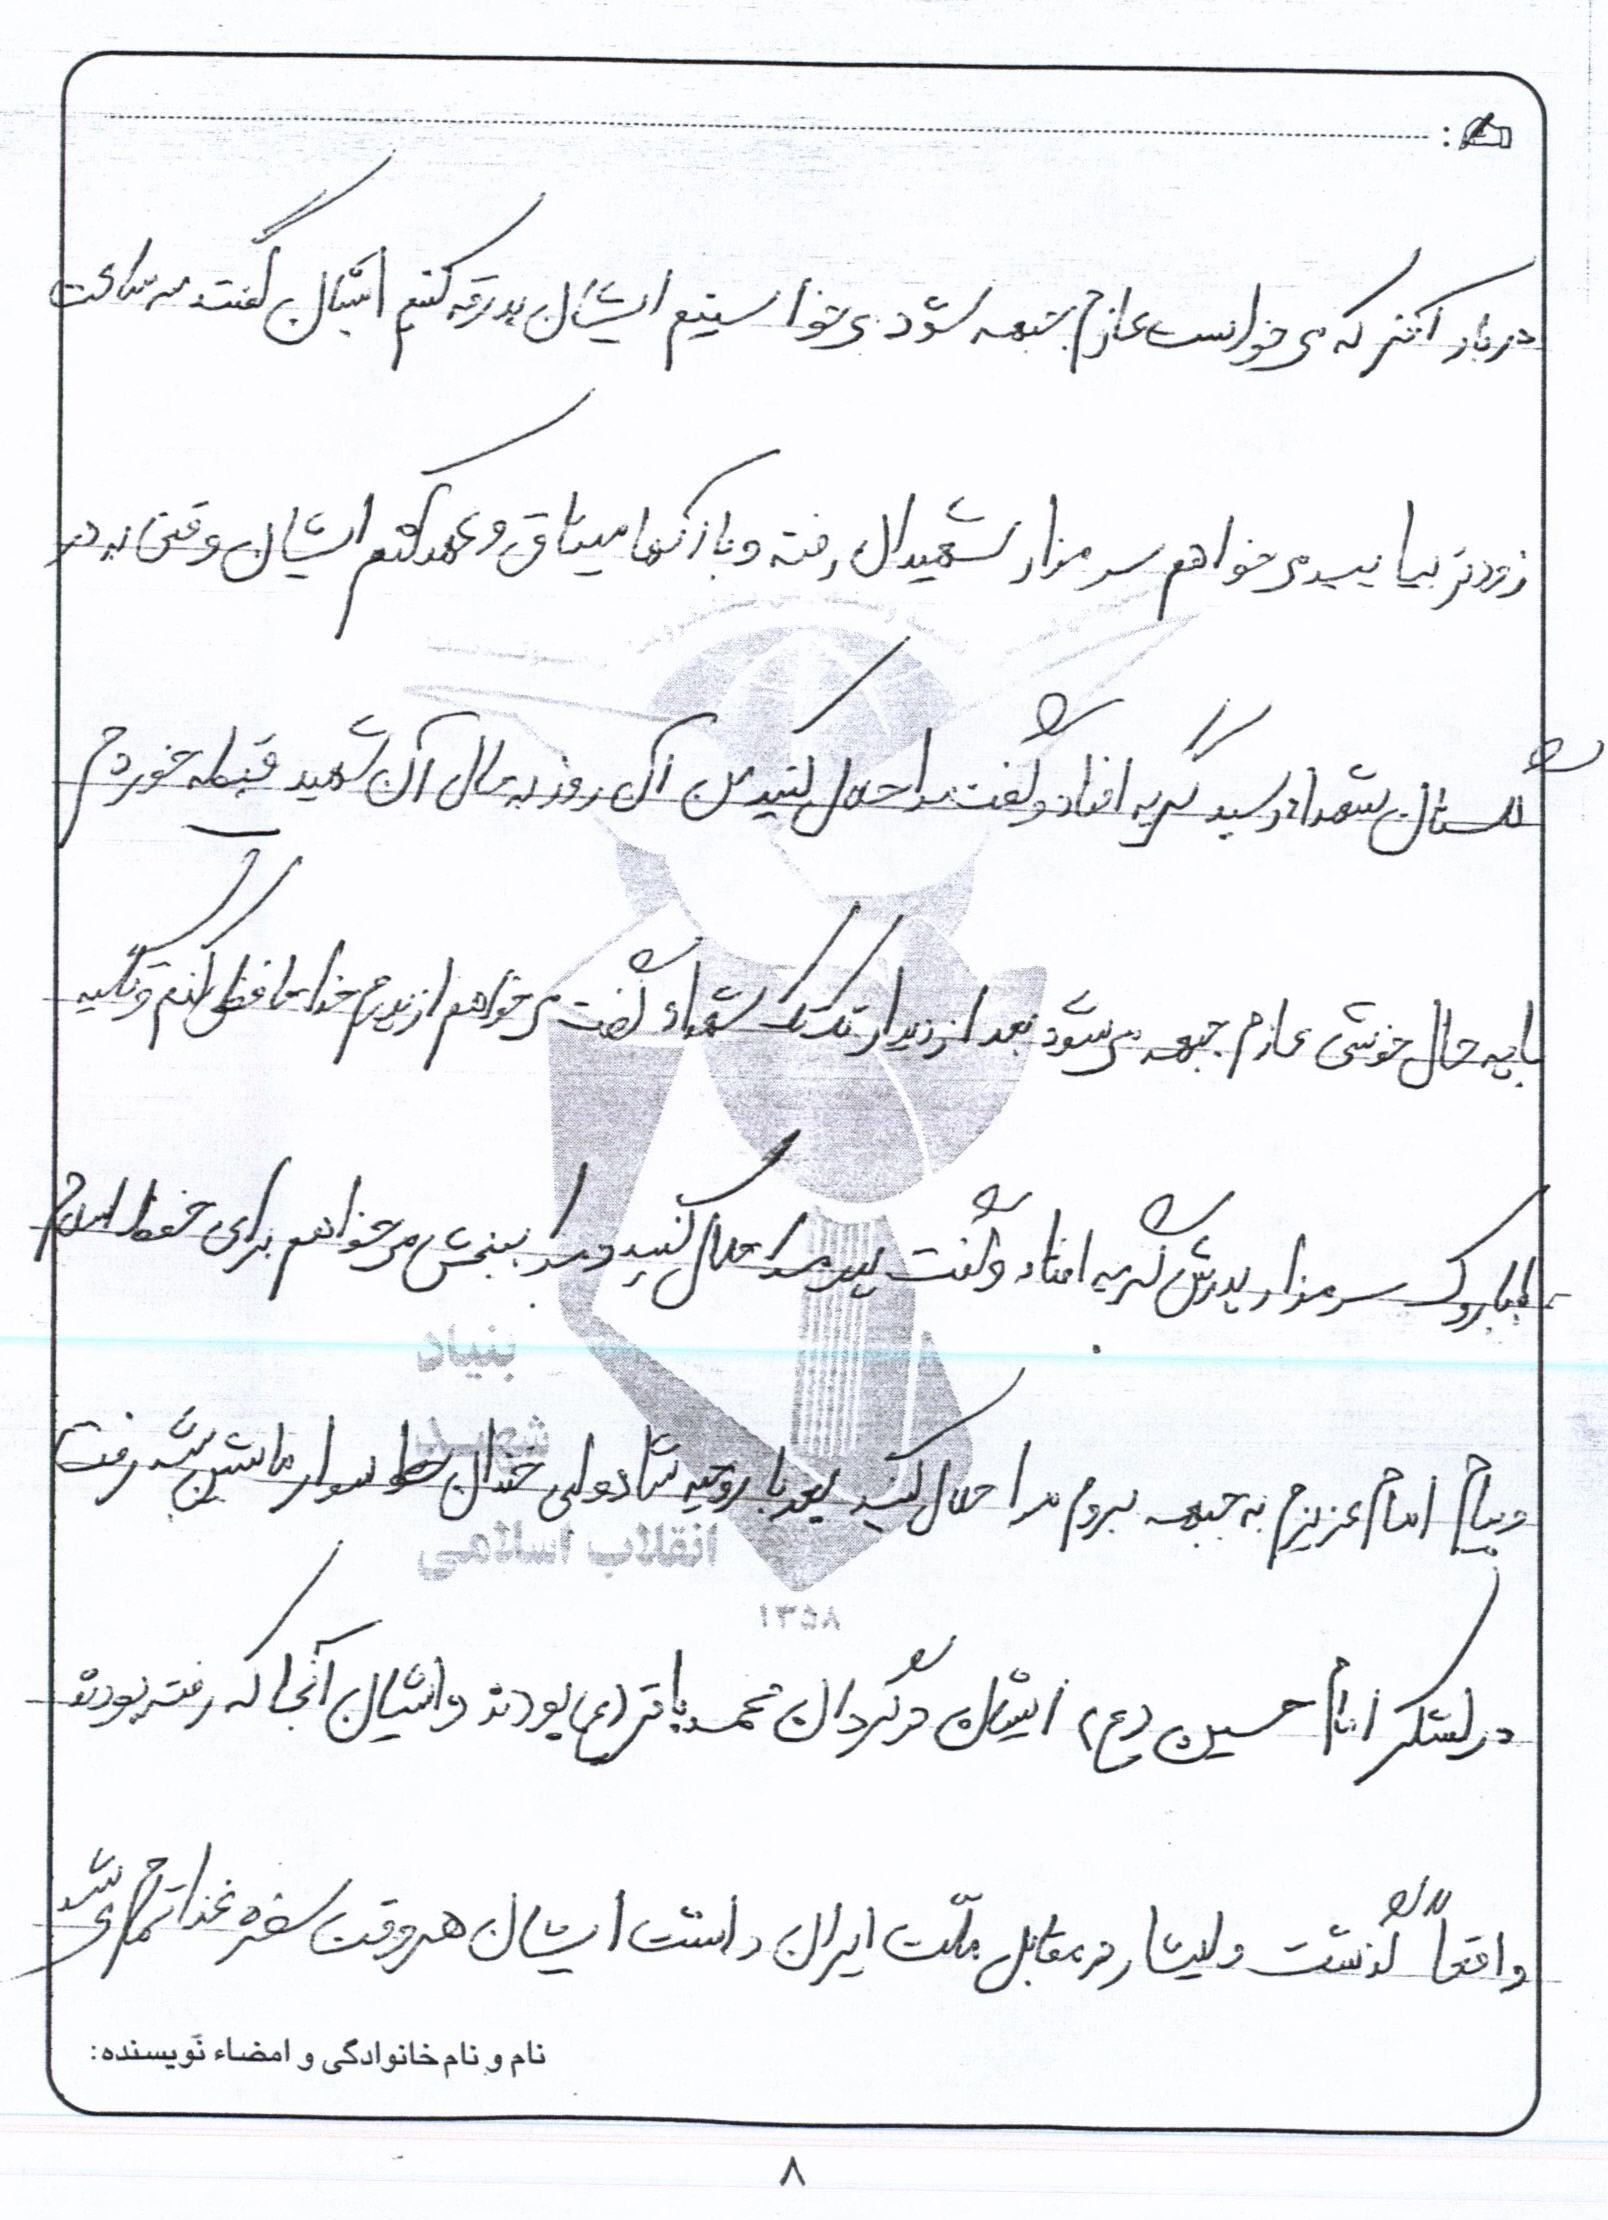 در بار آخر که می خواست عازم جبهه شود می خواستیم ایشان بدرقه کنیم ایشان گفتند سه ساعت
زودتر بیایید می خواهم سر مزار شهیدان رفته و باز آنها میثاق و عهد کنم ایشان وقتی به در
گلستان شهدا رسید گریه افتاد و گفت مرا حلال کنید من آن روز به حال آن شهید قبطه خوردم
با چه حال خوشی عازم جبهه می شود بعد از دیدار تک تک شهداء گفت می خواهم از پدرم خدا حافظی کنم وقتیکه
سر مزار پدرش گریه افتاد و گفت پدر مرا حلال کنید و مرا ببخش می خواهم برای حفظ اسلام
و پیام امام عزیزم به جبهه بروم مرا حلال کنید بعد با روحیه شاد ولبی خندان سوار ماشین شد رفت
در لشکر امام حسین (ع) ایشان در گردان محمد باقر (ع) بودند و ایشان آنجا که رفته بودند
واقعاً گذشت و ایثار در مقابل ملّت ایران داشت ایشان هر وقت سفره غذا تمام می شد
نام و نام خانوادگی و امضاء نویسنده:
۸
بنیاد
شهید
انقلاب اسلامی
۱۳۵۸